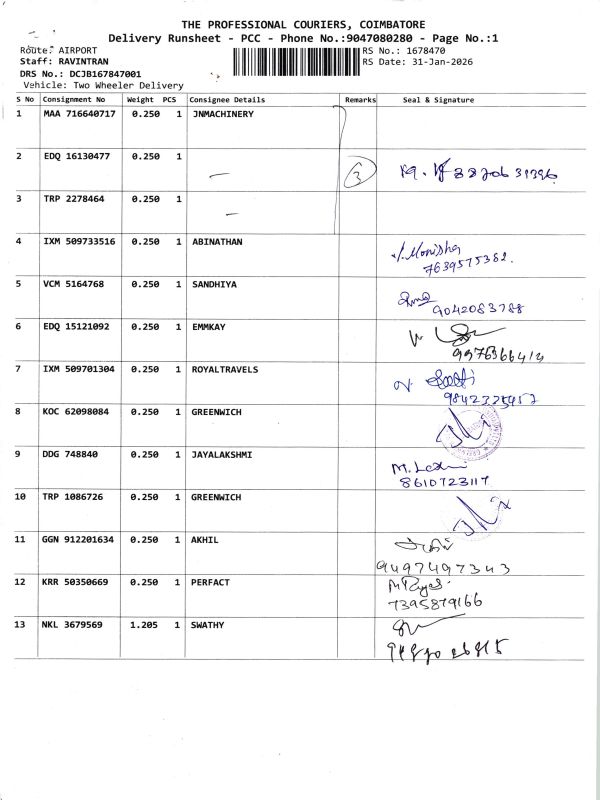 THE PROFESSIONAL COURIERS, COIMBATORE
Delivery Runsheet - PCC - Phone No.:9047080280 - Page No.:1
Route: AIRPORT RS No.: 1678470
Staff: RAVINTRAN RS Date: 31-Jan-2026
DRS No.: DCJB167847001
Vehicle: Two Wheeler Delivery
S No Consignment No Weight PCS Consignee Details Remarks Seal & Signature
1 MAA 716640717 0.250 1 JNMACHINERY
2 EDQ 16130477 0.250 1 — 3
3 TRP 2278464 0.250 1 —
4 IXM 509733516 0.250 1 ABINATHAN Monisha
7639575382.
5 VCM 5164768 0.250 1 SANDHIYA
9042083788
6 EDQ 15121092 0.250 1 EMMKAY
7 IXM 509701304 0.250 1 ROYALTRAVELS
9842325957
8 KOC 62098084 0.250 1 GREENWICH
9 DDG 748840 0.250 1 JAYALAKSHMI M. Laxmi
8610723117
10 TRP 1086726 0.250 1 GREENWICH
11 GGN 912201634 0.250 1 AKHIL
9497497343
12 KRR 50350669 0.250 1 PERFACT
7395879166
13 NKL 3679569 1.205 1 SWATHY